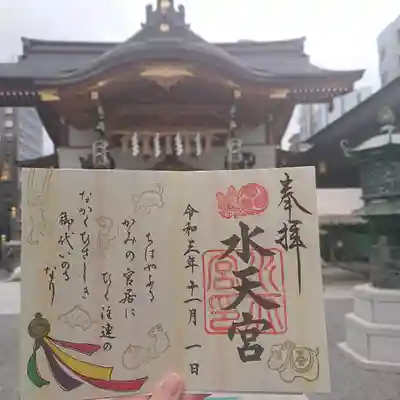 奉拝
水天宮
令和三年十一月一日
ちはやふる
かみの宮居に
ひく注連の
なかくひさしき
御代いのるなり